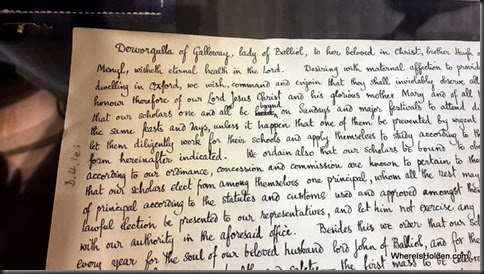 Dervorguilla of Galloway, lady of Balliol, to her beloved in Christ, brother Hugh of
Menyl, wisheth eternal health in the Lord. Desiring with maternal affection to provid
dwelling in Oxford, we wish, command and enjoin that they shall inviolably observe all
honour therefore of our Lord Jesus Christ and his glorious mother Mary and of all
that our scholars one and all be bound on Sundays and major festivals to attend di
the same feasts and days, unless it happen that one of them be prevented by urgent
let them diligently work for their schools and apply themselves to study according to th
form hereinafter indicated. We ordain also that our scholars be bound to obe
according to our ordinance, concession and commission are known to pertain to the
that our scholars elect from among themselves one principal, whom all the rest may
of principal according to the statutes and customs used and approved amongst the
lawful election be presented to our representatives, and let him not exercise any
with our authority in the aforesaid office. Besides this we order that our sch
every year for the soul of our beloved husband lord John of Balliol, and for the
the first mass to be celebra
WhereIsHolden.com